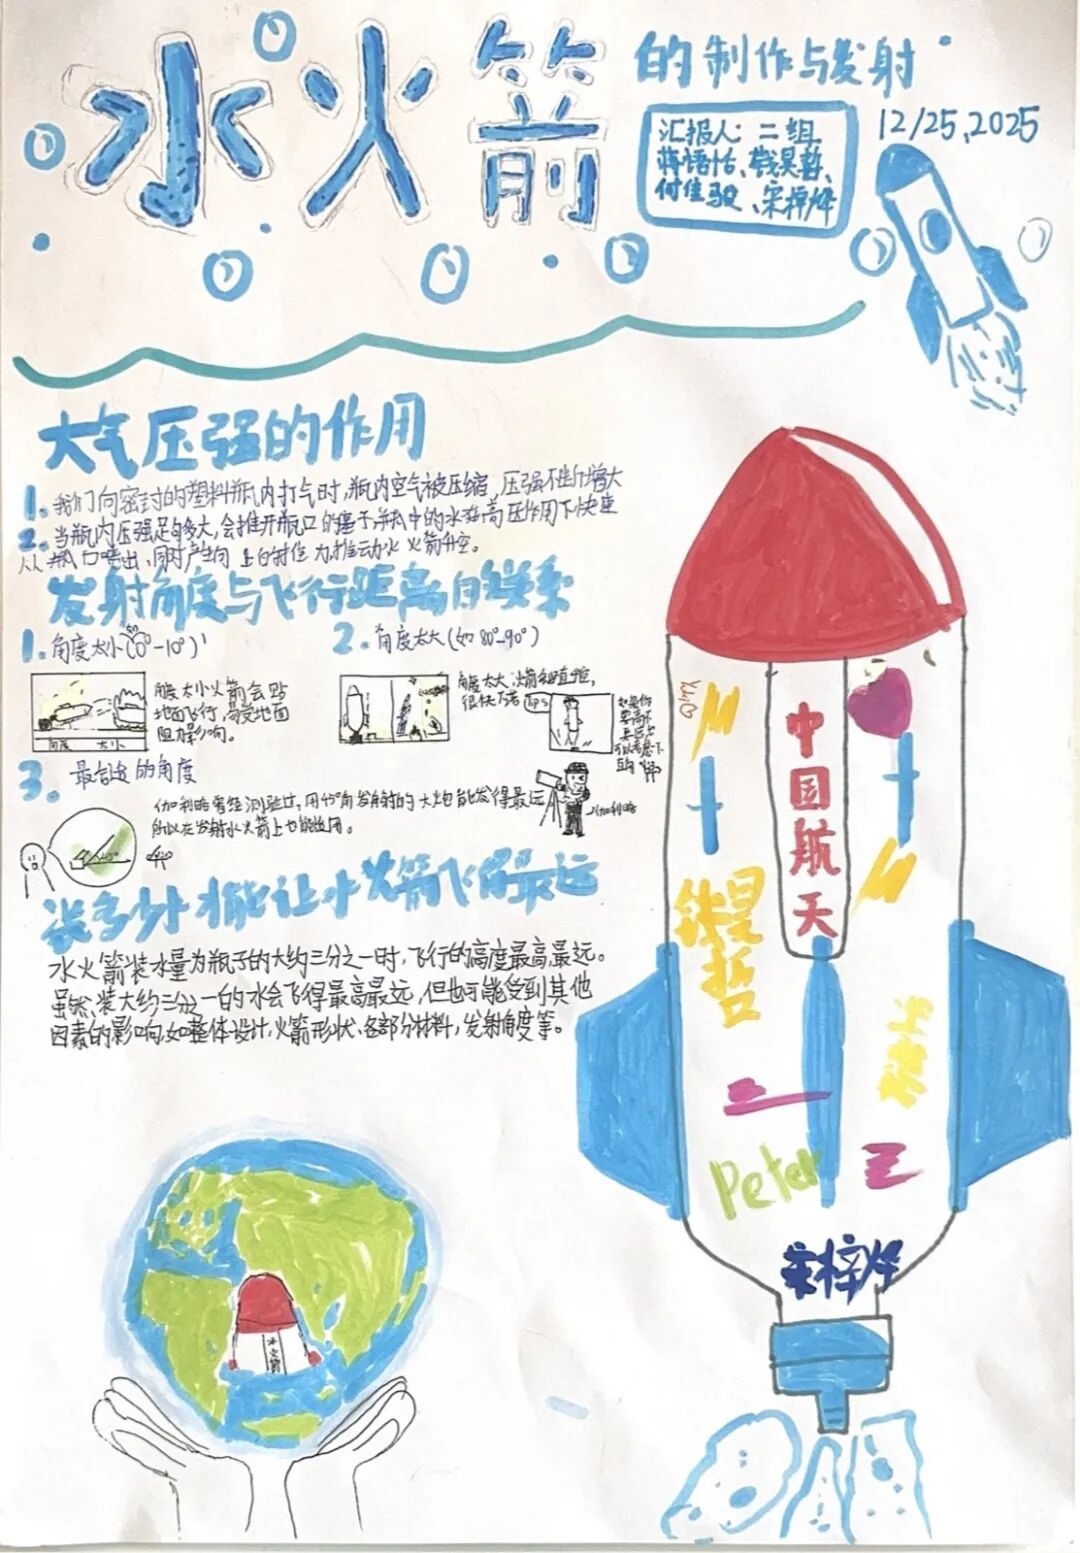 水火箭
的制作与发射
12/25,2025
汇报人：二组
蒋语恬、钱昊哲、
何佳骏、宋梓烨
大气压强的作用
1.我们向密封的塑料瓶内打气时,瓶内空气被压缩,压强不断增大
2.当瓶内压强足够大,会推开瓶口的塞子,瓶中的水在高压作用下快速
从瓶口喷出,同时产生向上的射位力推动水火箭升空。
发射角度与飞行距离的关系
1.角度太小(如0°-10°)
2.角度太大(如80°-90°)
角度太小火箭会贴
地面飞行,易受地面
阻力影响。
角度 太小
角度太大,火箭垂直
很快下落
Tips
3.最合适的角度
伽利略曾经测验过,用45°角发射的大炮能发得最远
所以在发射水火箭上也能应用。
伽利略
45°
装多少水才能让水火箭飞得最远
水火箭装水量为瓶子的大约三分之一时,飞行的高度最高,最远。
虽然,装大约三分之一的水会飞得最高最远,但也可能受到其他
因素的影响,如整体设计,火箭形状、各部分材料,发射角度等。
中
国
航
天
钱昊哲
Peter
宋梓烨
水火箭